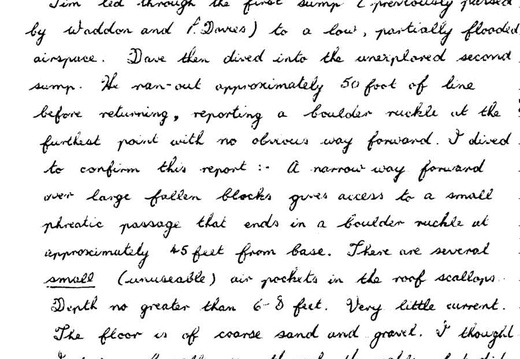 Tim led through the first sump (previously passed
by Waddon and P. Davies) to a low, partially flooded
airspace. Dave then dived into the unexplored second
sump. He ran-out approximately 50 foot of line
before returning, reporting a boulder ruckle at the
furthest point with no obvious way forward. I dived
to confirm this report :- A narrow way forward
over large fallen blocks gives access to a small
phreatic passage that ends in a boulder ruckle at
approximately 45 feet from base. There are several
small (unuseable) air pockets in the roof scallops.
Depth no greater than 6-8 feet. Very little current.
The floor is of coarse sand and gravel. I thought